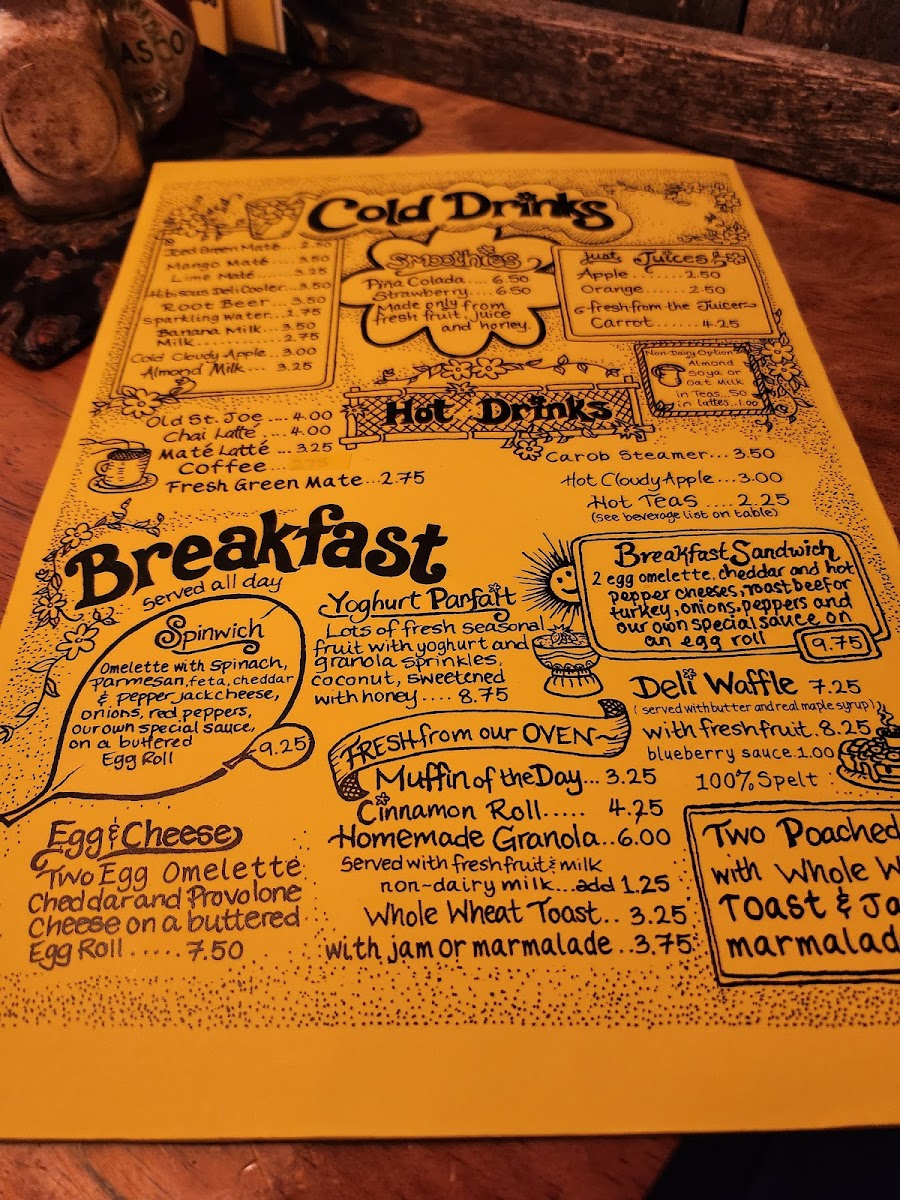 ASCO
Cold Drinks
Iced Green Maté .... 2.50
Mango Maté ..... 3.50
Lime Maté ..... 3.25
Hibiscus Deli Cooler .. 3.50
Root Beer ... 3.50
Sparkling Water... 1.75
Banana Milk... 3.50
Milk ........... 2.75
Cold Cloudy Apple.. 3.00
Almond Milk.... 3.25
Smoothies
Piña Colada .... 6.50
Strawberry ..... 6.50
Made only from
fresh fruit, juice
and honey.
Just Juices
Apple ......... 2.50
Orange ....... 2.50
fresh from the Juicer
Carrot ....... 4.25
Non-Dairy Option
Almond
Soya or
Oat Milk
in Teas...50
in lattes..1.00
Hot Drinks
Old St. Joe .... 4.00
Chai Latté .... 4.00
Maté Latté .... 3.25
Coffee ...
Fresh Green Mate...2.75
Carob Steamer...3.50
Hot Cloudy Apple...3.00
Hot Teas .... 2.25
(see beverage list on table)
Breakfast
served all day
Spinwich
Omelette with Spinach,
parmesan, feta, cheddar
& pepper jack cheese,
onions, red peppers,
our own special sauce,
on a buttered
Egg Roll
9.25
Egg & Cheese
Two Egg Omelette
Cheddar and Provolone
Cheese on a buttered
Egg Roll ..... 7.50
Yoghurt Parfait
Lots of fresh seasonal
fruit with yoghurt and
granola sprinkles,
coconut, sweetened
with honey .... 8.75
FRESH from our OVEN
Muffin of the Day... 3.25
Cinnamon Roll..... 4.25
Homemade Granola..6.00
Served with fresh fruit & milk
non-dairy milk...add 1.25
Whole Wheat Toast.. 3.25
with jam or marmalade..3.75
Breakfast Sandwich
2 egg omelette, cheddar and hot
pepper cheeses, roast beef or
turkey, onions, peppers and
our own special sauce on
an egg roll
9.75
Deli Waffle 7.25
(served with butter and real maple syrup)
with fresh fruit. 8.25
blueberry sauce 1.00
100% Spelt
Two Poached
with Whole W
Toast & Ja
marmalad